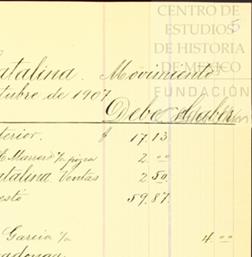 CENTRO DE
ESTUDIOS
DE HISTORIA
DE MEXICO
FUNDACIÓN
5
atalina. Movimiento
tubre de 1907
Debe Haber
terior. $ 17.13
2 00
atalina Ventas 2 50
esto 59.87
Garcia 4 00